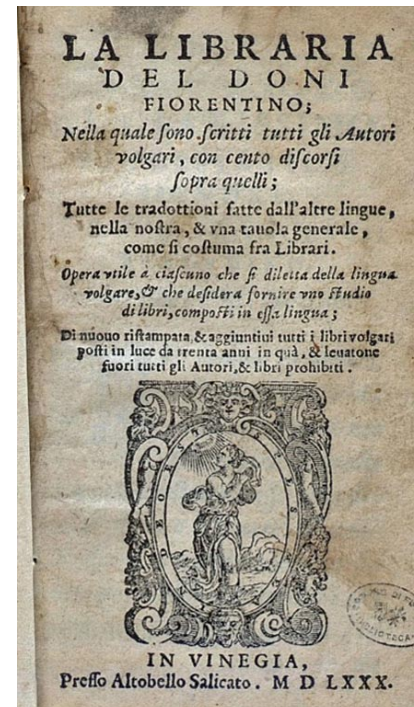 LA LIBRARIA
DEL DONI
FIORENTINO;
Nella quale sono scritti tutti gli Autori
volgari, con cento discorsi
sopra quelli;
Tutte le tradottioni fatte dall'altre lingue,
nella nostra, & vna tauola generale,
come si costuma fra Librari.
Opera vtile à ciascuno che si diletta della lingua
volgare, & che desidera fornire vno studio
di libri, composti in essa lingua;
Di nuouo ristampata, & aggiuntiui tutti i libri volgari
posti in luce da trenta anni in quà, & leuatone
fuori tutti gli Autori, & libri prohibiti.
IN VINEGIA,
Presso Altobello Salicato. M D LXXX.